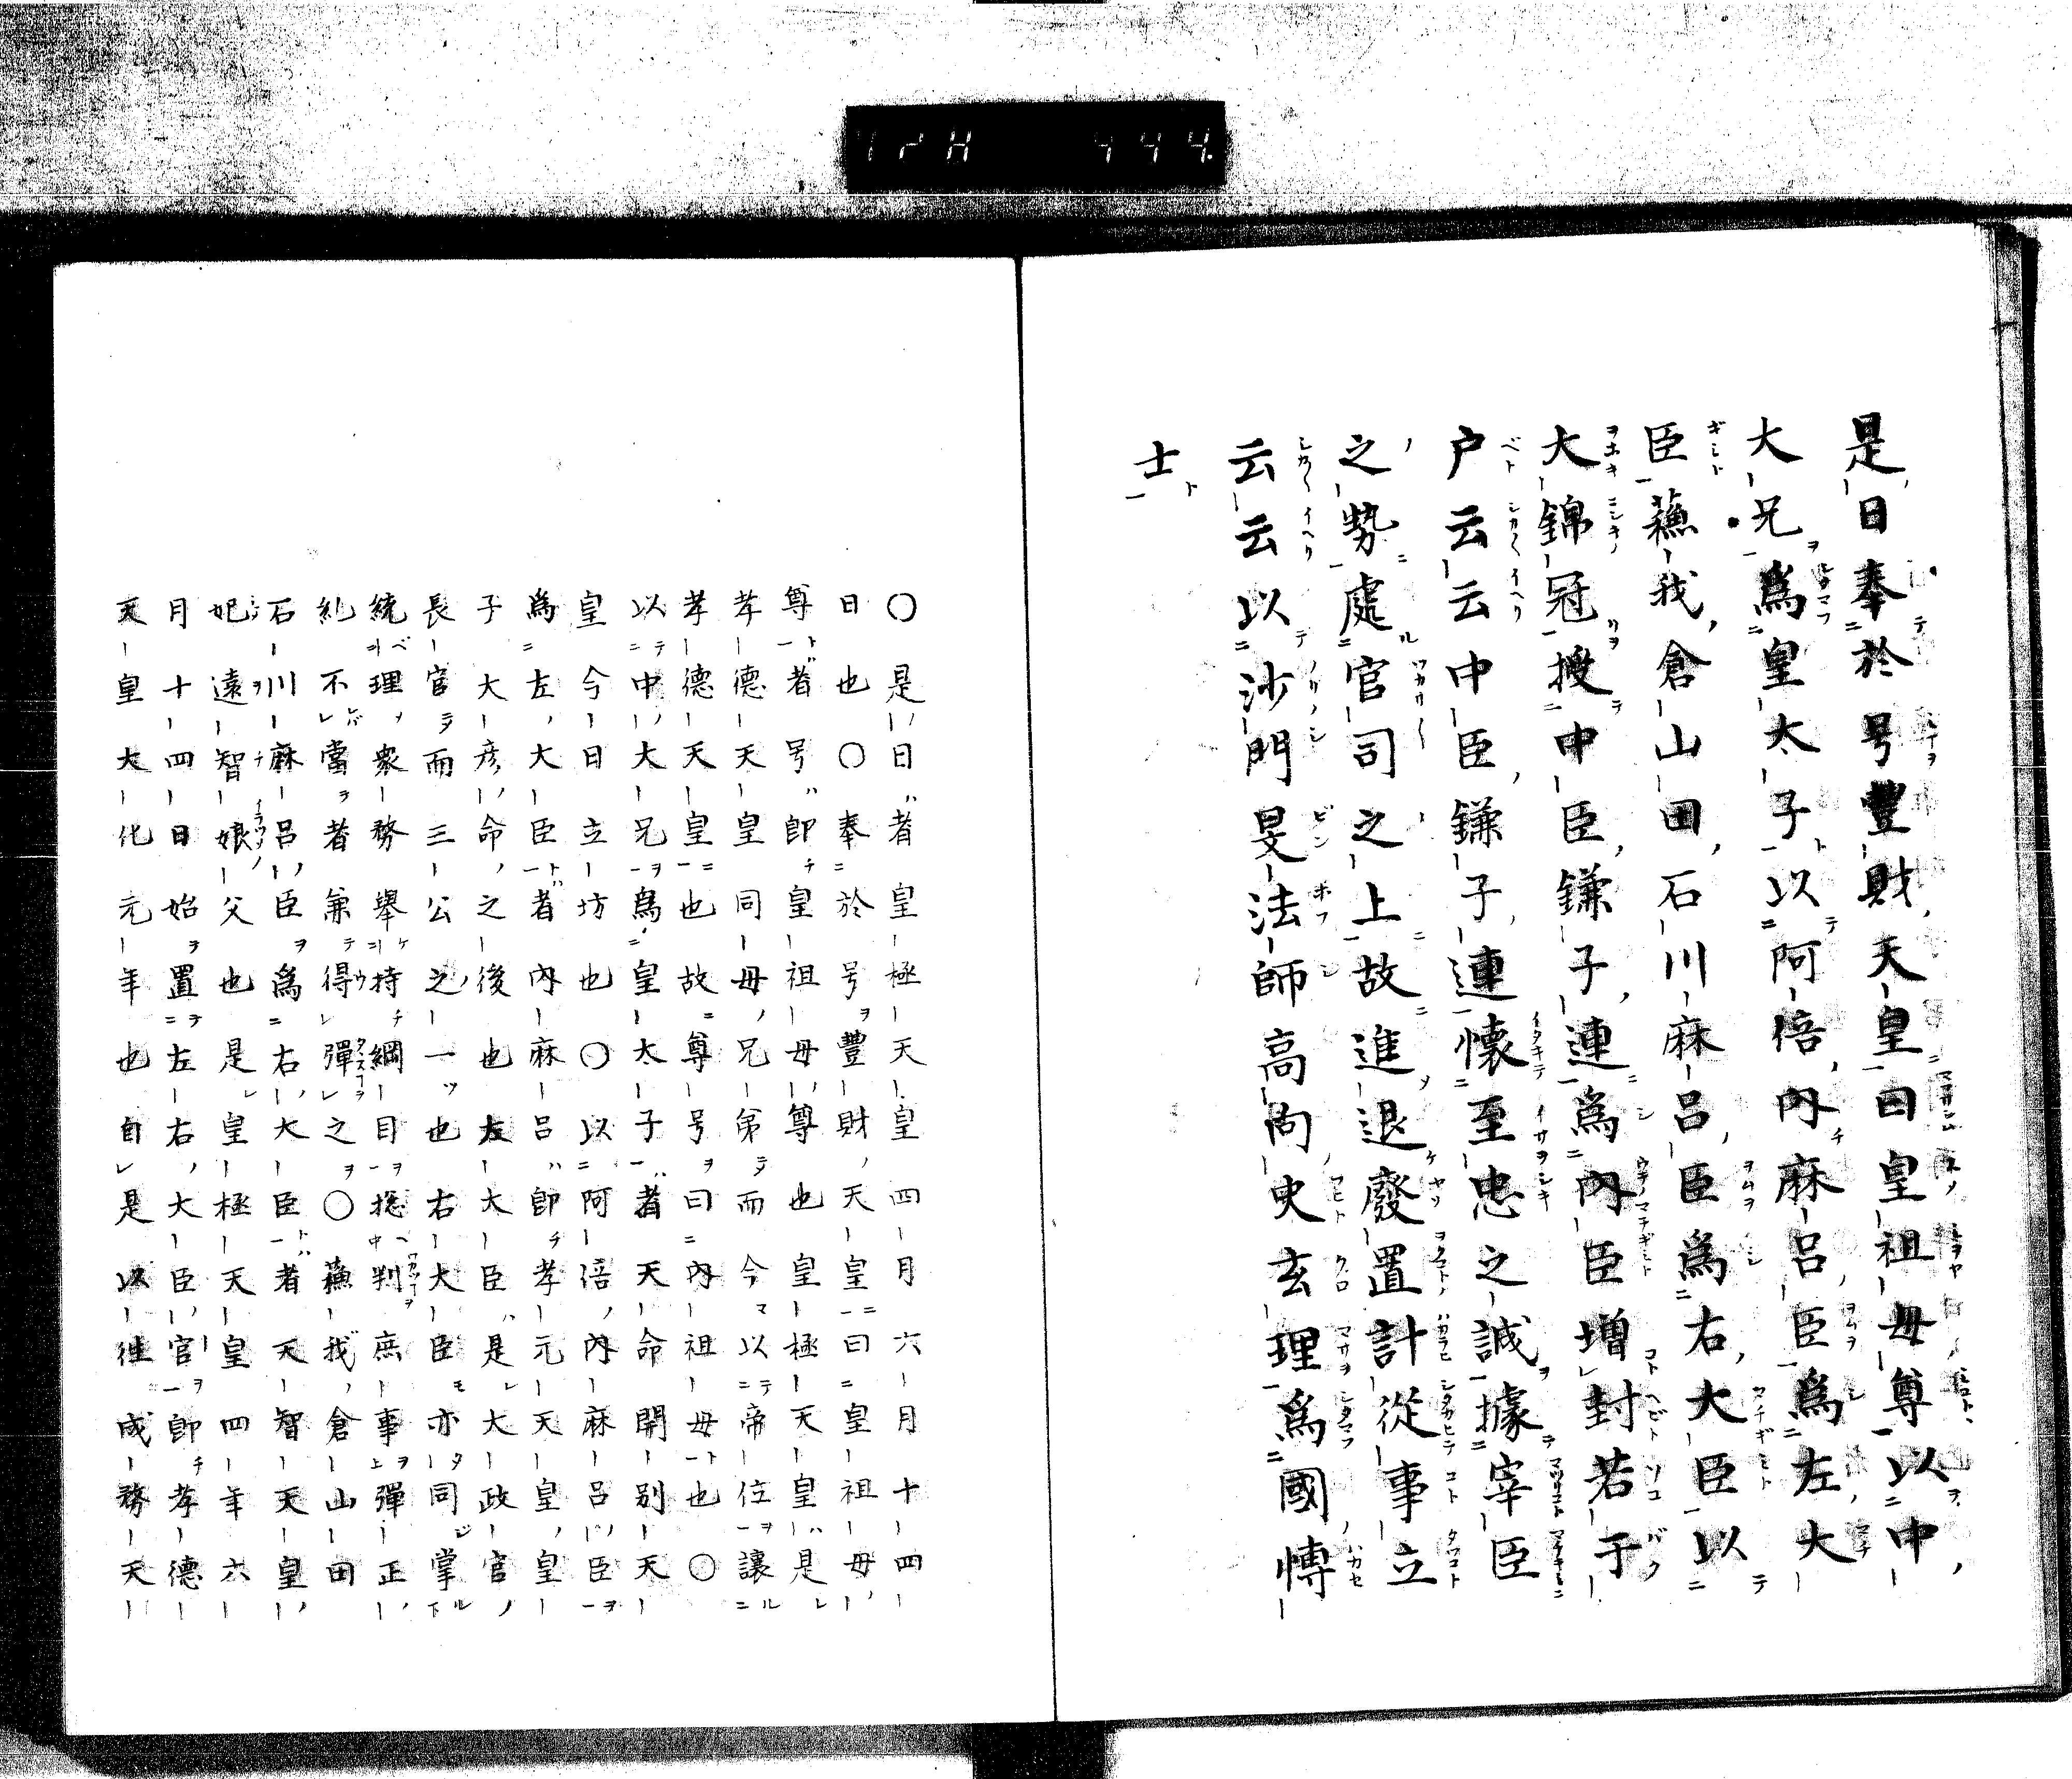 是日奉於号豊財天皇曰皇祖母尊以中
大兄爲皇太子以阿倍内麻呂臣爲左大
臣蘓我倉山田石川麻呂臣爲右大臣以
大錦冠授中臣鎌子連爲内臣増封若于
戸云云中臣鎌子連懐至忠之誠據宰臣
之勢處官司之上故進退廢置計從事立
云云以沙門旻法師高向史玄理爲國博
士
〇是日者皇極天皇四月六月十四
日也〇奉於号豊財天皇曰皇祖母
尊者号即皇祖母尊也皇極天皇是
孝徳天皇同母兄弟而今以帝位讓
孝徳天皇也故尊号曰内祖母也〇
以中大兄爲皇太子者天命開別天
皇今日立坊也〇以阿倍内麻呂臣
爲左大臣者内麻呂即孝元天皇皇
子大彦命之後也左大臣是大政官
長官而三公之一也右大臣亦同掌
統理衆務舉持綱目捴判庶事彈正
糺不當者兼得彈之〇蘓我倉山田
石川麻呂臣爲右大臣者天智天皇
妃遠智娘父也是皇極天皇四年六
月十四日始置左右大臣官即孝徳
天皇大化元年也自是以徃成務天